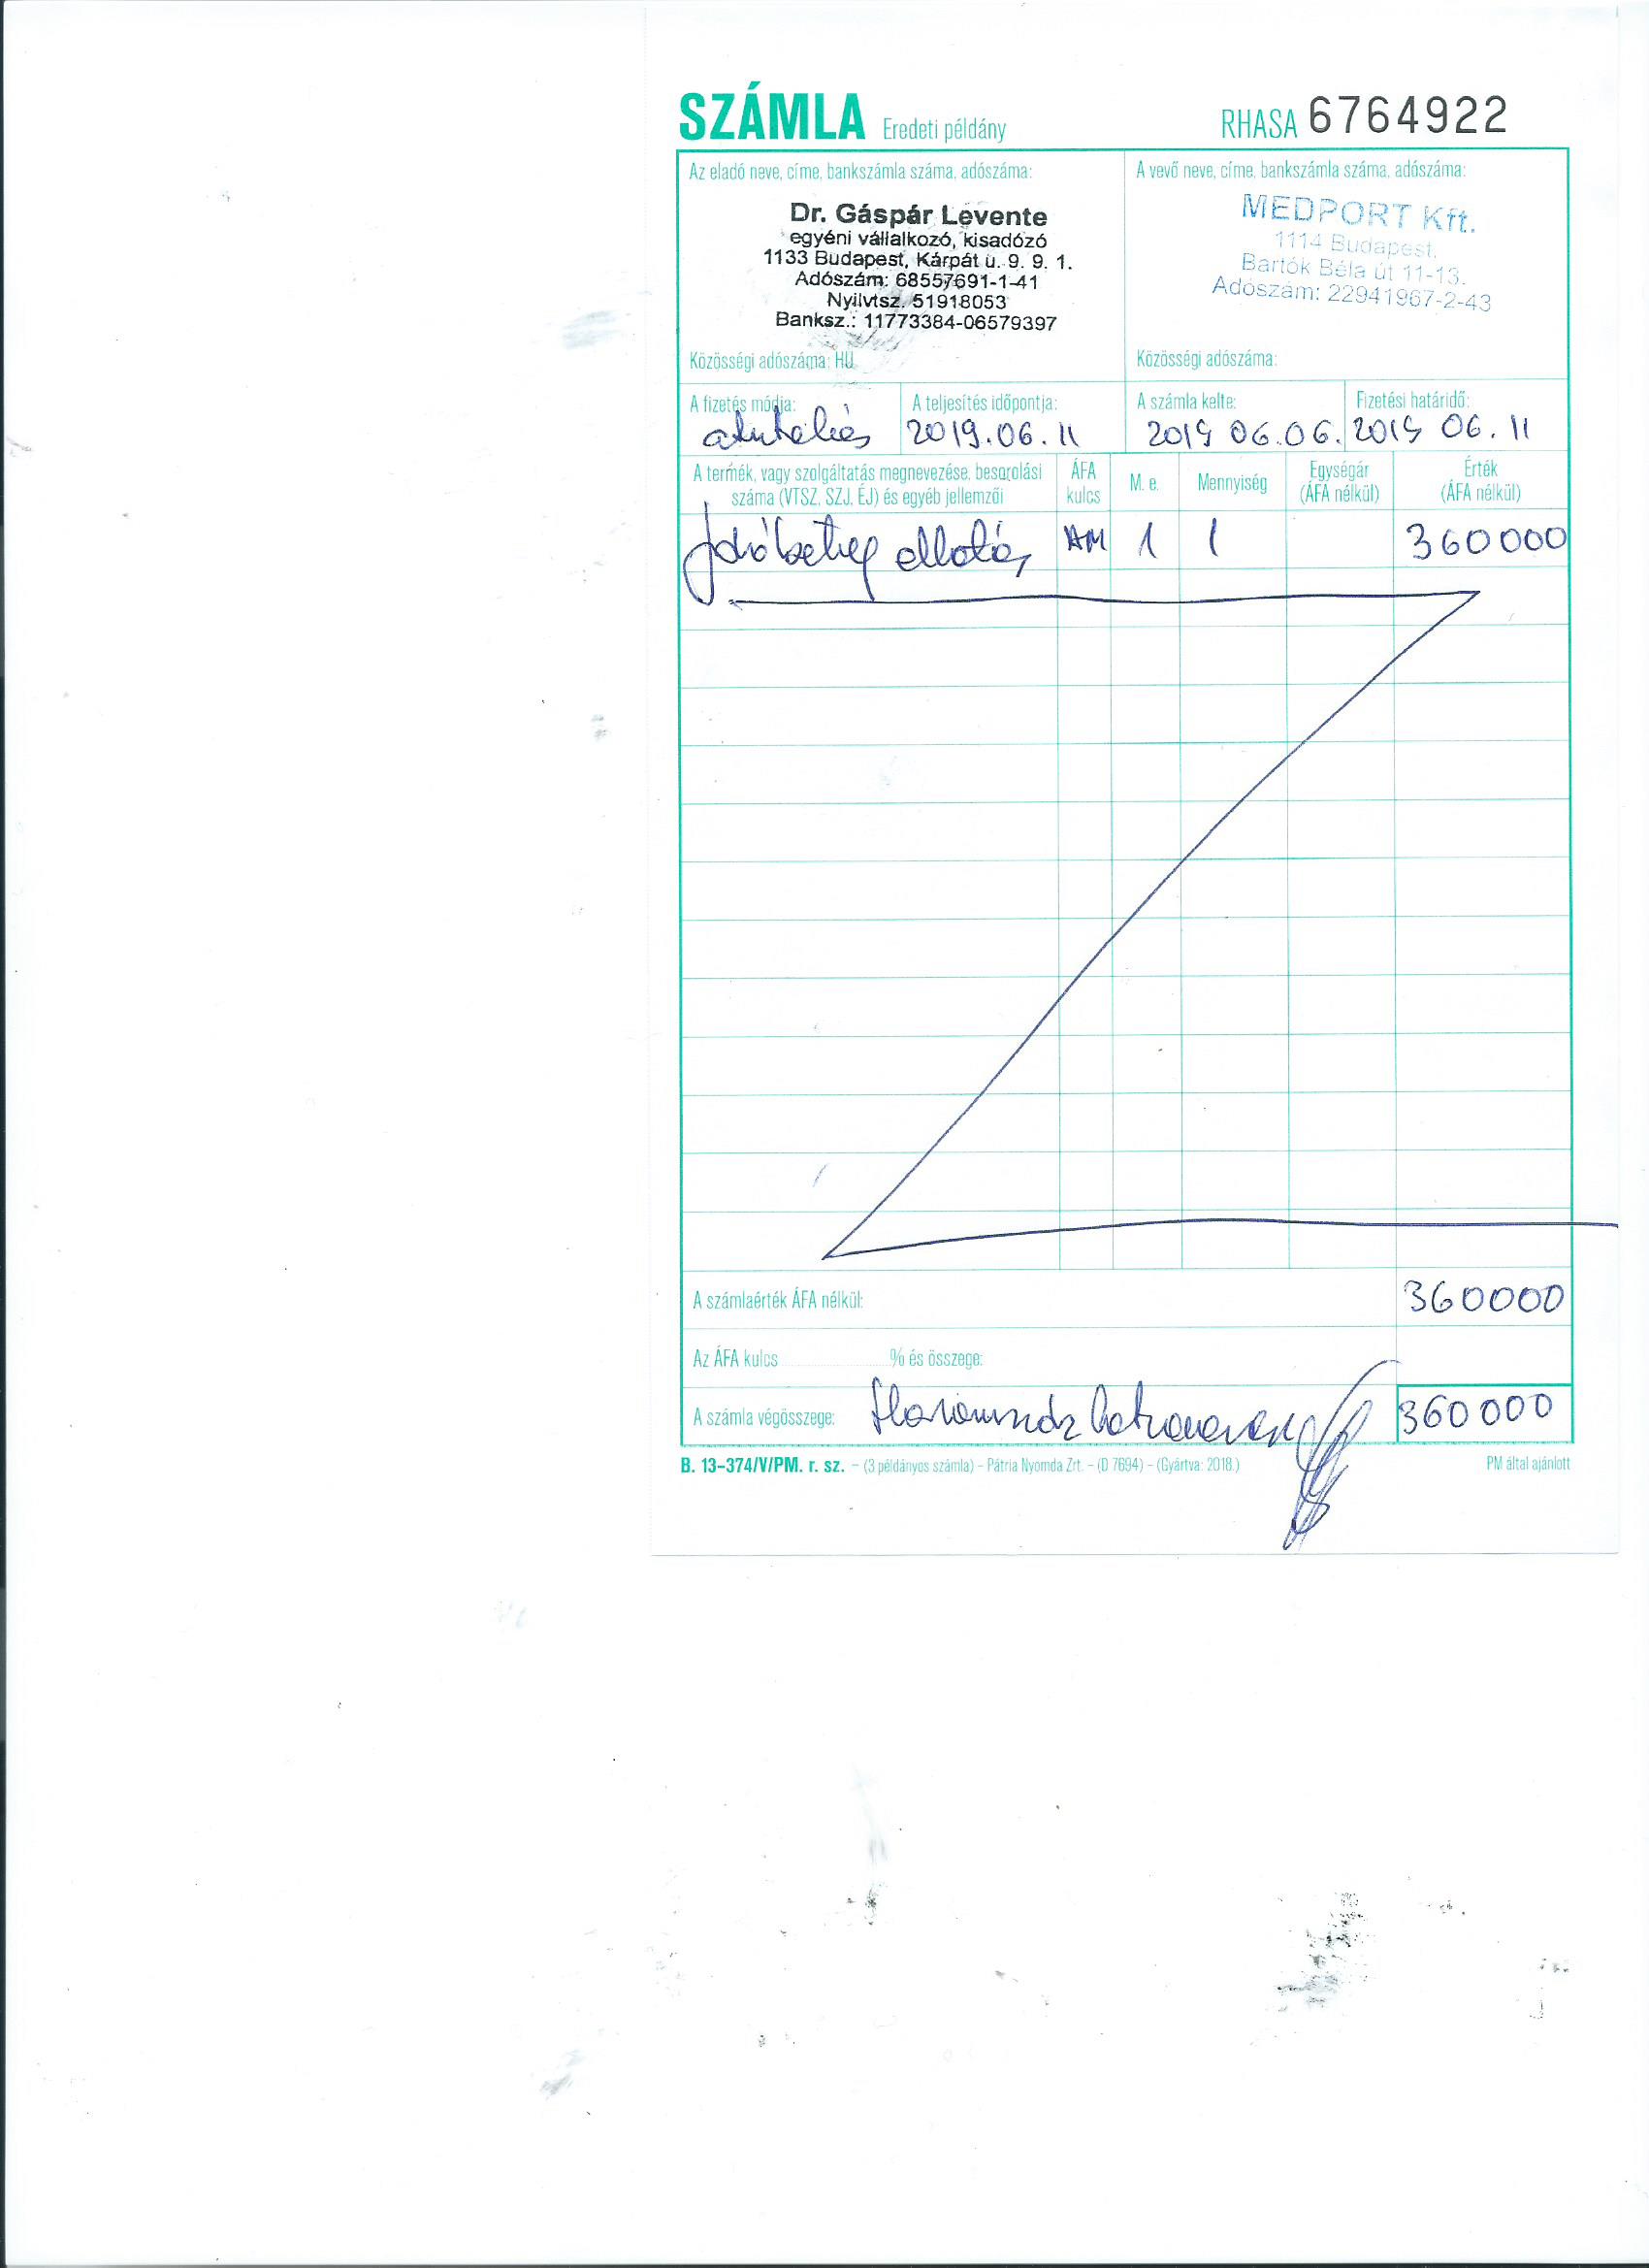 SZÁMLA Eredeti példány RHASA 6764922
Az eladó neve, címe, bankszámla száma, adószáma:
Dr. Gáspár Levente
egyéni vállalkozó, kisadózó
1133 Budapest, Kárpát u. 9. 9. 1.
Adószám: 68557691-1-41
Nyilvtsz. 51918053
Banksz.: 11773384-06579397
Közösségi adószáma: HU
A vevő neve, címe, bankszámla száma, adószáma:
MEDPORT Kft.
1114 Budapest,
Bartók Béla út 11-13.
Adószám: 22941967-2-43
Közösségi adószáma:
A fizetés módja:
átutalás
A teljesítés időpontja:
2019.06.11
A számla kelte:
2019 06.06.
Fizetési határidő:
2019 06.11
A termék, vagy szolgáltatás megnevezése, besorolási
száma (VTSZ, SZJ, ÉJ) és egyéb jellemzői
ÁFA
kulcs
M. e.
Mennyiség
Egységár
(ÁFA nélkül)
Érték
(ÁFA nélkül)
Járóbeteg ellátás AM 1 1 360000
A számlaérték ÁFA nélkül: 360000
Az ÁFA kulcs % és összege:
A számla végösszege: Háromszázhatvanezer 360000
B. 13-374/V/PM. r. sz. – (3 példányos számla) – Pátria Nyomda Zrt. – (D 7694) – (Gyártva: 2018.) PM által ajánlott